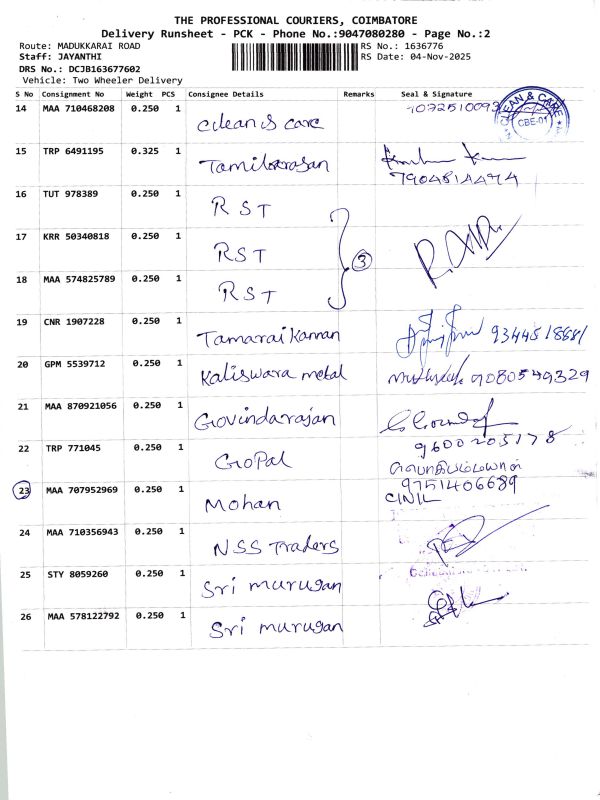 THE PROFESSIONAL COURIERS, COIMBATORE
Delivery Runsheet - PCK - Phone No.:9047080280 - Page No.:2
Route: MADUKKARAI ROAD RS No.: 1636776
Staff: JAYANTHI RS Date: 04-Nov-2025
DRS No.: DCJB163677602
Vehicle: Two Wheeler Delivery
S No Consignment No Weight PCS Consignee Details Remarks Seal & Signature
14 MAA 710468208 0.250 1 Clean & Care CLEAN & CARE CBE-01
15 TRP 6491195 0.325 1 Tamilarasan
7904814474
16 TUT 978389 0.250 1 RST
17 KRR 50340818 0.250 1 RST 3
18 MAA 574825789 0.250 1 RST
19 CNR 1907228 0.250 1 Tamarai Kannan
20 GPM 5539712 0.250 1 Kaliswara metal 9080549329
21 MAA 870921056 0.250 1 Govindarajan
9600205178
22 TRP 771045 0.250 1 GoPal
9751406689
23 MAA 707952969 0.250 1 Mohan
24 MAA 710356943 0.250 1 NSS Traders
25 STY 8059260 0.250 1 Sri murugan
26 MAA 578122792 0.250 1 Sri murugan